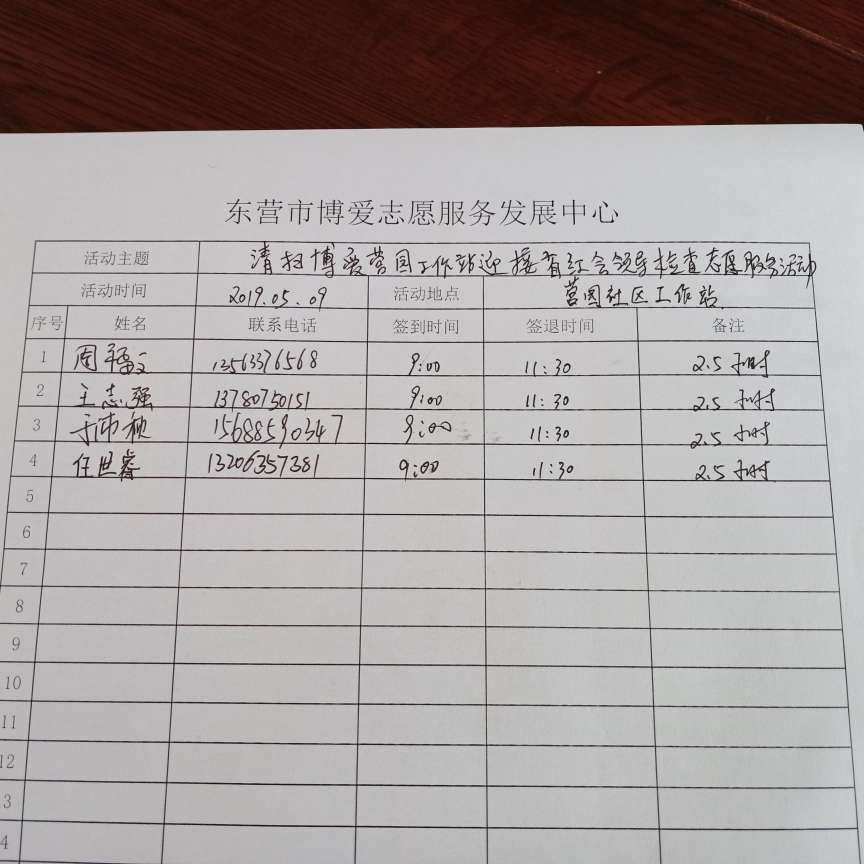 东营市博爱志愿服务发展中心
活动主题 清扫博爱营园工作站迎接省红会领导检查志愿服务活动
活动时间 2019.05.09 活动地点 营园社区工作站
序号 姓名 联系电话 签到时间 签退时间 备注
1 周福文 13563376568 9:00 11:30 2.5小时
2 王志强 13780750151 9:00 11:30 2.5小时
3 15688590347 9:00 11:30 2.5小时
4 任世睿 13206357381 9:00 11:30 2.5小时
5
6
7
8
9
10
11
12
3
4